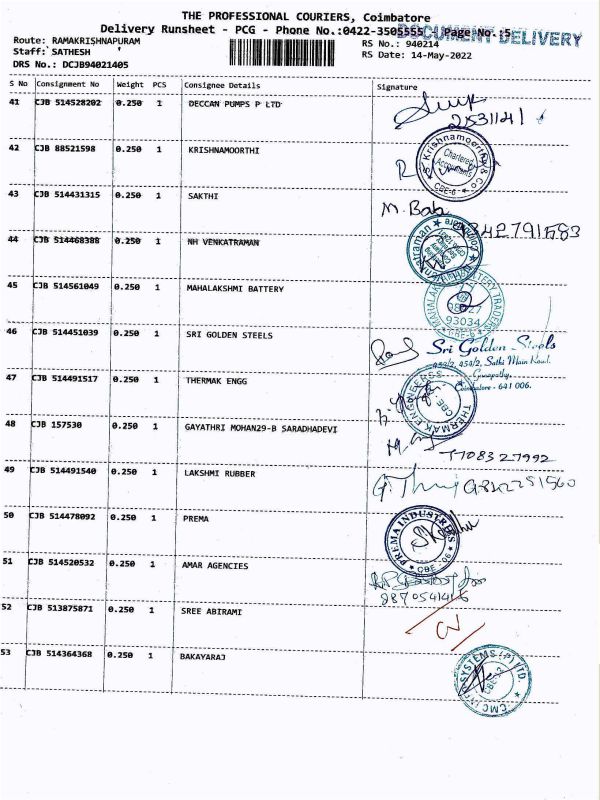 THE PROFESSIONAL COURIERS, Coimbatore
Delivery Runsheet - PCG - Phone No.:0422-3505555 Page No.:5
DOCUMENT DELIVERY
Route: RAMAKRISHNAPURAM
RS No.: 940214
Staff: SATHESH
RS Date: 14-May-2022
DRS No.: DCJB94021405
S No Consignment No Weight PCS Consignee Details Signature
41 CJB 514528202 0.250 1 DECCAN PUMPS P LTD
2531141
42 CJB 88521598 0.250 1 KRISHNAMOORTHI
S. Krishnamoorthy & Co
Chartered Accountants
CBE-6
43 CJB 514431315 0.250 1 SAKTHI
M. Bab
44 CJB 514468388 0.250 1 NH VENKATRAMAN
45 CJB 514561049 0.250 1 MAHALAKSHMI BATTERY
93034
CBE-6
46 CJB 514451039 0.250 1 SRI GOLDEN STEELS
Sri Golden Steels
453/2, 454/2, Sathi Main Road,
Ganapathy,
Coimbatore - 641 006.
47 CJB 514491517 0.250 1 THERMAK ENGG
THERMAK ENGINEERS
CBE-6
48 CJB 157530 0.250 1 GAYATHRI MOHAN29-B SARADHADEVI
7708327992
49 CJB 514491540 0.250 1 LAKSHMI RUBBER
50 CJB 514478092 0.250 1 PREMA
PREMA INDUSTRIES
CBE-06
51 CJB 514520532 0.250 1 AMAR AGENCIES
8870541416
52 CJB 513875871 0.250 1 SREE ABIRAMI
53 CJB 514364368 0.250 1 BAKAYARAJ